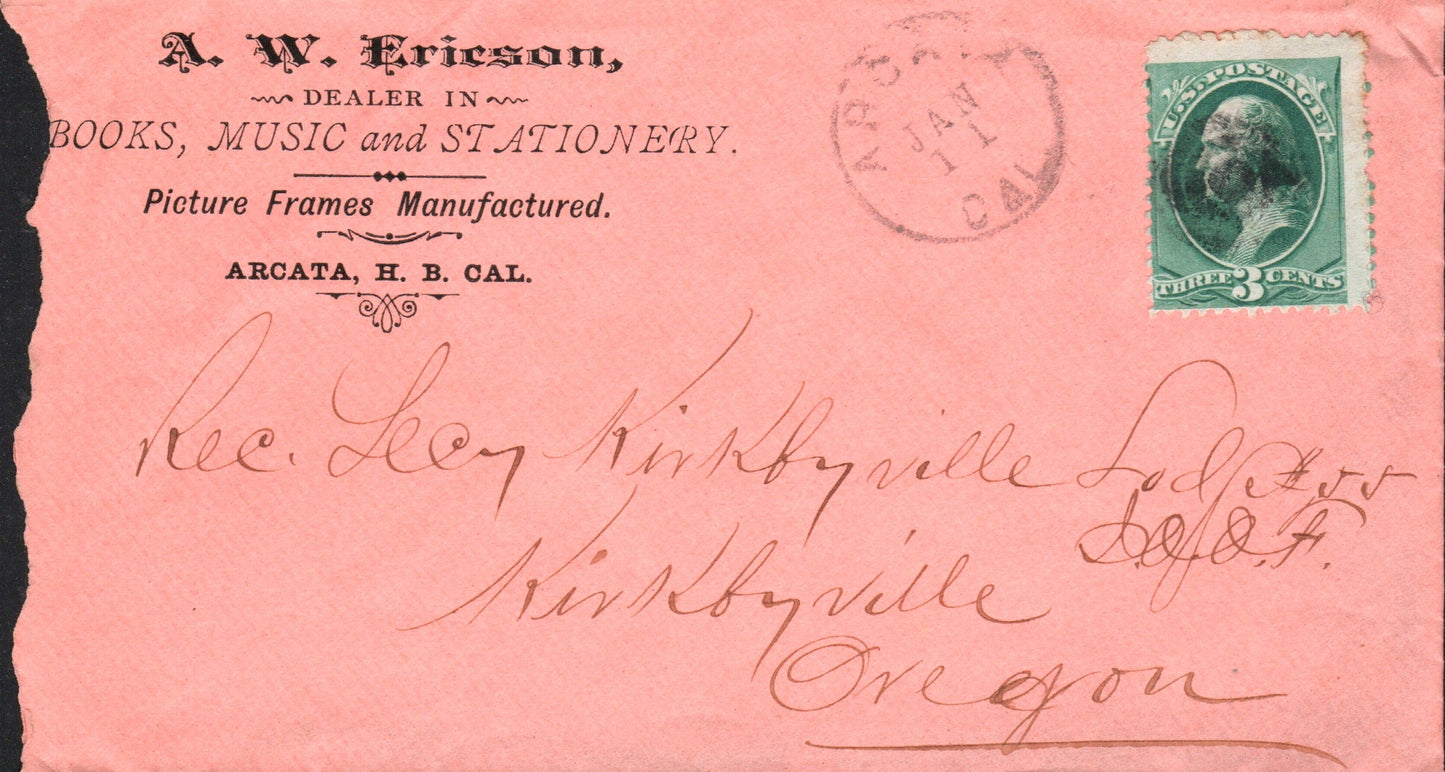 A. W. Ericson,
DEALER IN
BOOKS, MUSIC and STATIONERY.
Picture Frames Manufactured.
ARCATA, H. B. CAL.
ARCATA
JAN
11
CAL
U.S. POSTAGE
THREE 3 CENTS
Rec. Secy Kirkbyville Lodg # 55
I.O.O.F.
Kirkbyville
Oregon